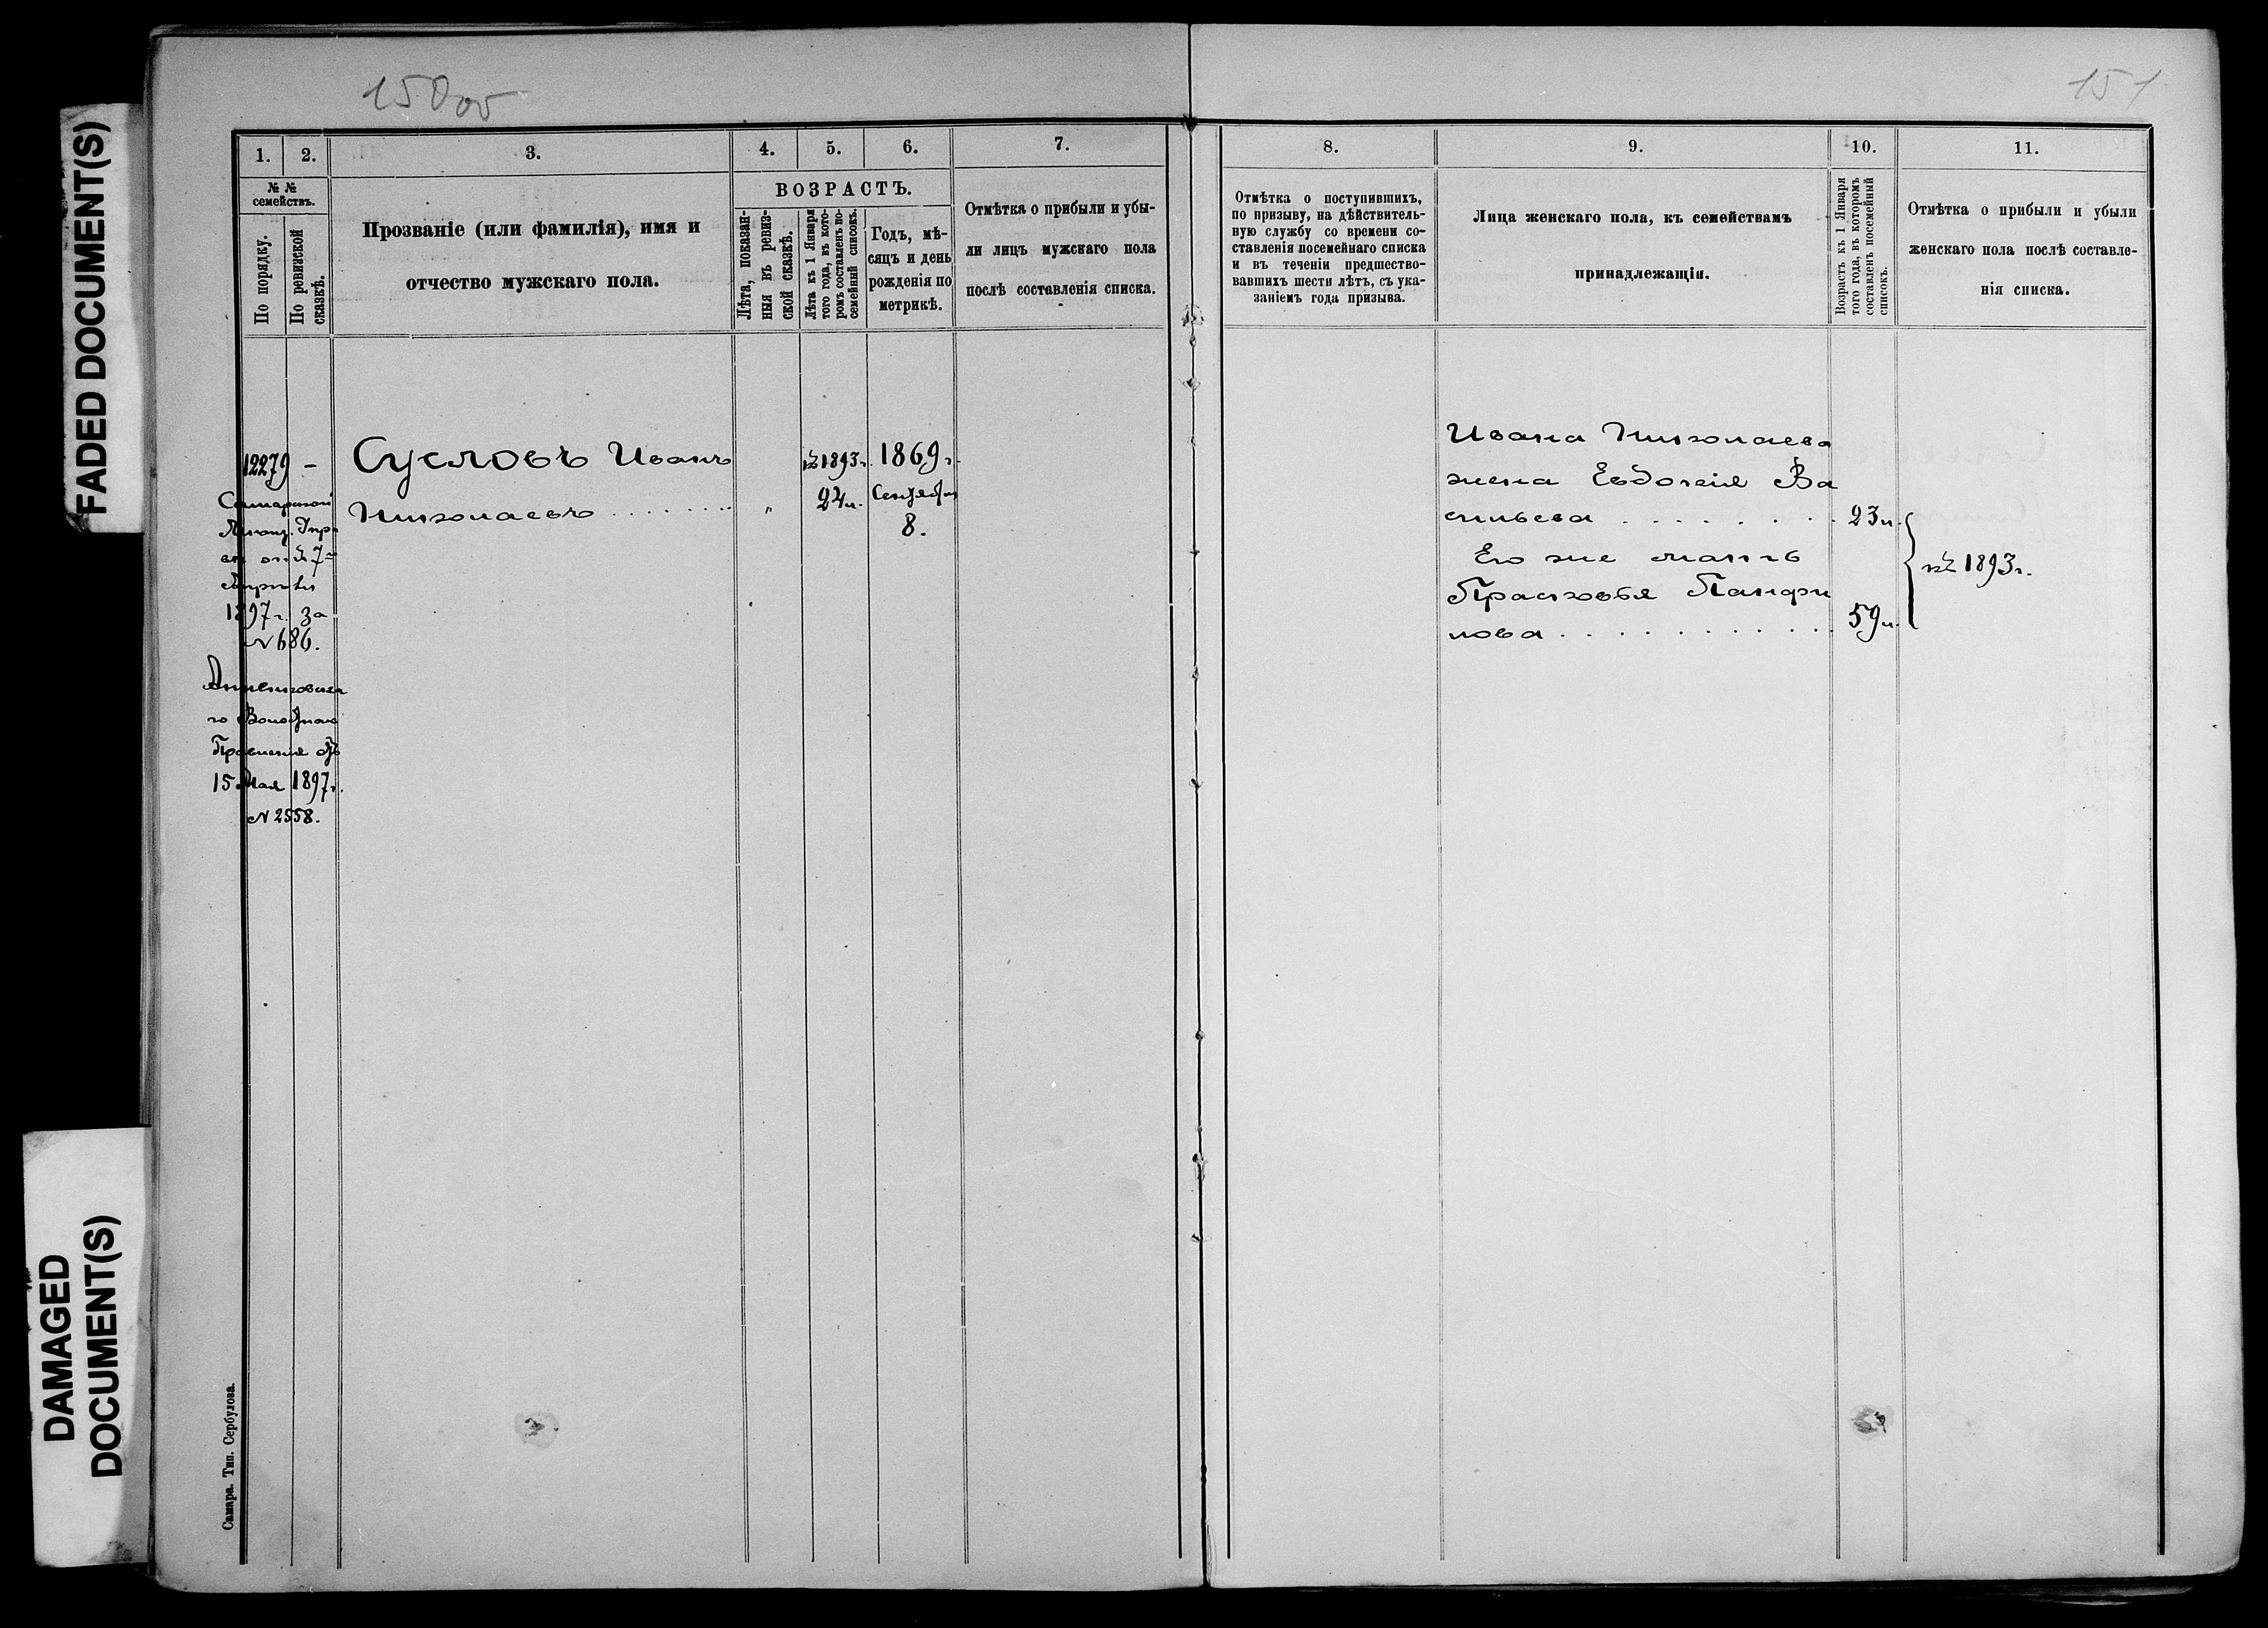 FADED DOCUMENT(S)
DAMAGED
DOCUMENT(S)
150об
1.
2.
3.
4.
5.
6.
7.
№ №
семействъ.
По порядку.
По ревизской
сказкѣ.
Прозваніе (или фамилія), имя и
отчество мужскаго пола.
ВОЗРАСТЪ.
Лѣта, показан-
ныя въ ревиз-
ской сказкѣ.
Лѣта къ 1 Января
того года, въ кото-
ромъ составленъ по-
семейный списокъ.
Годъ, мѣ-
сяцъ и день
рожденія по
метрикѣ.
Отмѣтка о прибыли и убы-
ли лицъ мужскаго пола
послѣ составленія списка.
12279 –
Самарской
Упр
1897г. за
№ 686.
го Волостного
Правленія отъ
15 Мая 1897г.
№ 2558.
Сусловъ Иванъ
Николаевъ
"
къ 1893г.
24л.
1869г.
Сентября
8.
Самара. Тип. Сербулова.
151
8.
9.
10.
11.
Отмѣтка о поступившихъ,
по призыву, на дѣйствитель-
ную службу со времени со-
ставленія посемейнаго списка
и въ теченіи предшество-
вавшихъ шести лѣтъ, съ ука-
заніемъ года призыва.
Лица женскаго пола, къ семействамъ
принадлежащія.
Возрастъ къ 1 Января
того года, въ которомъ
составленъ посемейный
списокъ.
Отмѣтка о прибыли и убыли
женскаго пола послѣ составле-
нія списка.
Ивана Николаева
жена Евдокія Ва
сильева 23л.
Его же мать
Прасковья Панфи
лова 59л.
къ 1893г.